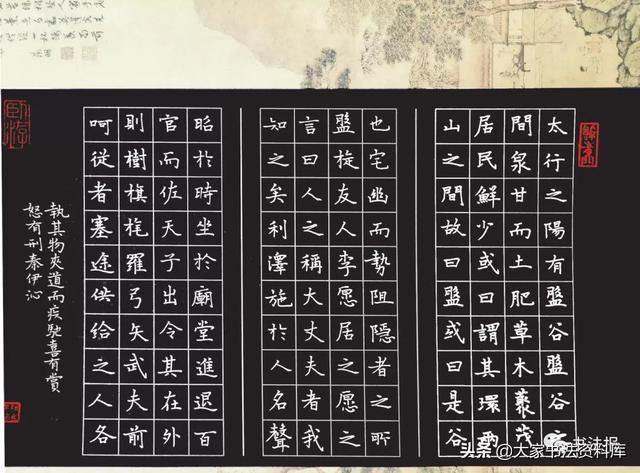 太行之陽有盤谷盤谷之
間泉甘而土肥草木藂茂
居民鮮少或曰謂其環兩
山之間故曰盤或曰是谷
也宅幽而勢阻隱者之所
盤旋友人李愿居之愿之
言曰人之稱大丈夫者我
知之矣利澤施於人名聲
昭於時坐於廟堂進退百
官而佐天子出令其在外
則樹旗旄羅弓矢武夫前
呵從者塞途供給之人各
執其物夾道而疾馳喜有賞
怒有刑秦伊沁
臥游
书法报
头条 @大家书法资料库